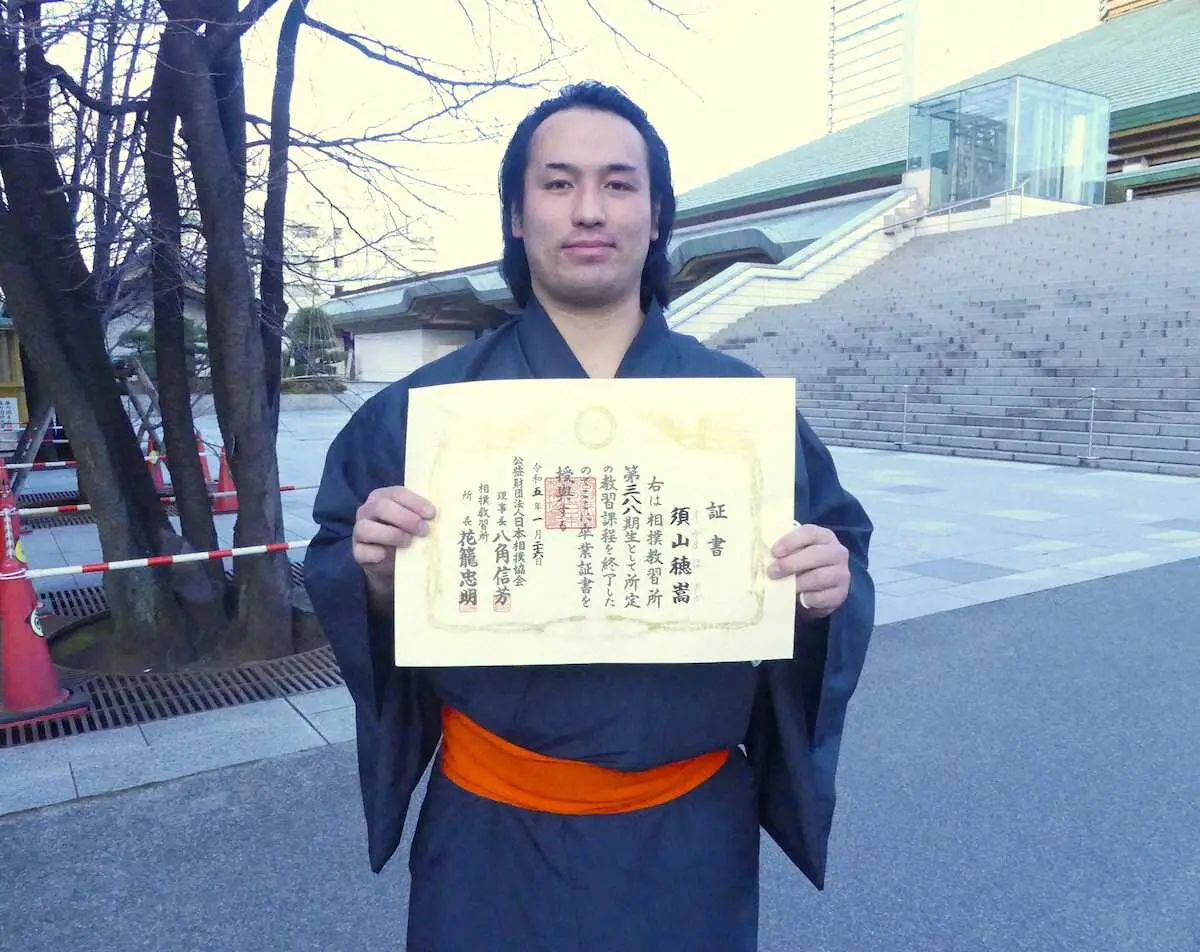 証書
須山穂嵩
右は相撲教習所
第三八八期生として所定
の教習課程を終了した
のでここに卒業証書を
授与する
令和五年一月二六日
公益財団法人日本相撲協会
理事長 八角信芳
相撲教習所
所長 花籠忠明